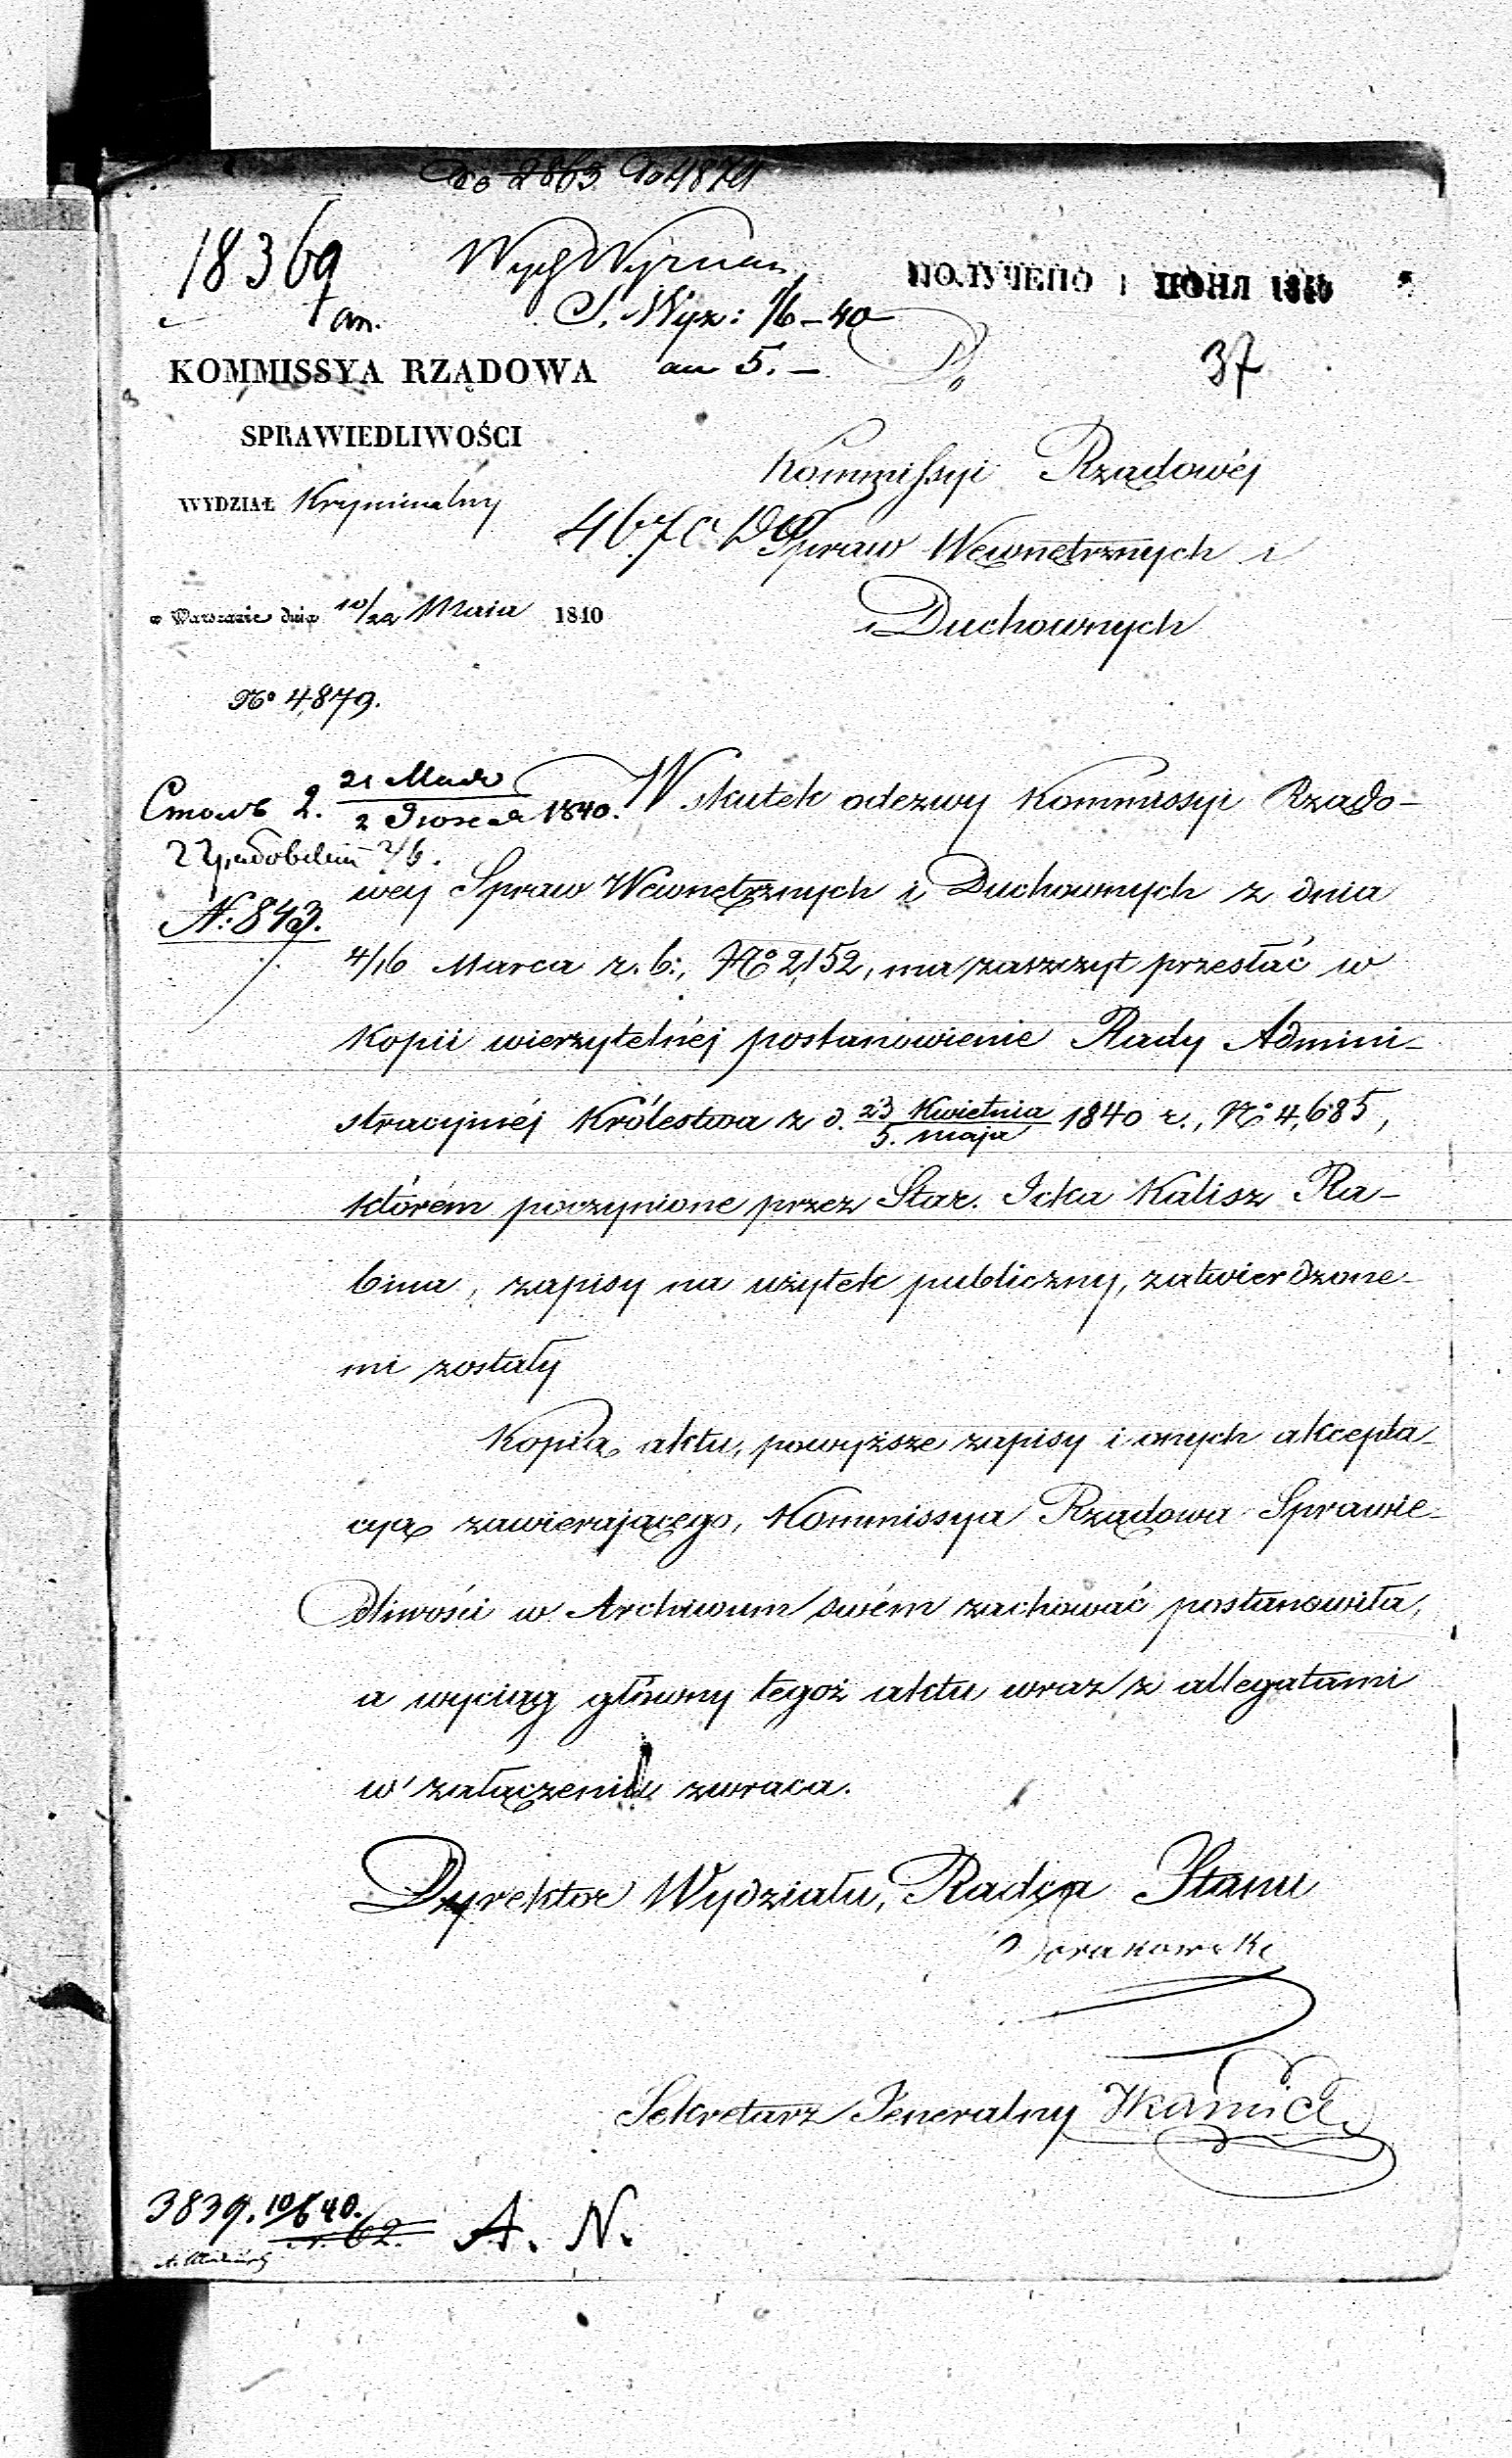 do 2863 do 4879
18369
an.
Wyzn.
S. Wyz: 1/6 - 40
an 5. -
ПОЛУЧЕНО 1 ІЮНЯ 1840
37
KOMMISSYA RZĄDOWA
SPRAWIEDLIWOŚCI
WYDZIAŁ Kryminalny
w Warszawie dnia 10/22 Maia 1840
No 4,879.
Do
Kommissyi Rządowéj
Spraw Wewnętrznych i
Duchownych
Столъ 2. 21 / 2 1840.
2/6.
N: 843.
W skutek odezwy Kommissyi Rządo-
wey Spraw Wewnętrznych i Duchownych z dnia
4/16 Marca r. b:, No 2,152, ma zaszczyt przesłać w
kopii wierzytelnéj postanowienie Rady Admini-
stracyjnéj Królestwa z d. 23 Kwietnia / 5. maja 1840 r., No 4,685,
którém poczynione przez Star. Icka Kalisz Ra-
bina, zapisy na użytek publiczny, zatwierdzone-
mi zostały
Kopią aktu, powyższe zapisy i onych akcepta-
cyą zawierającego, Kommissya Rządowa Sprawie-
dliwości w Archiwum swém zachować postanowiła,
a wyciąg główny tegoż aktu wraz z allegatami
w załączeniu zwraca.
Dyrektor Wydziału, Radca Stanu
Sekretarz Jeneralny
3839. 10/6 40.
62.
A. N.